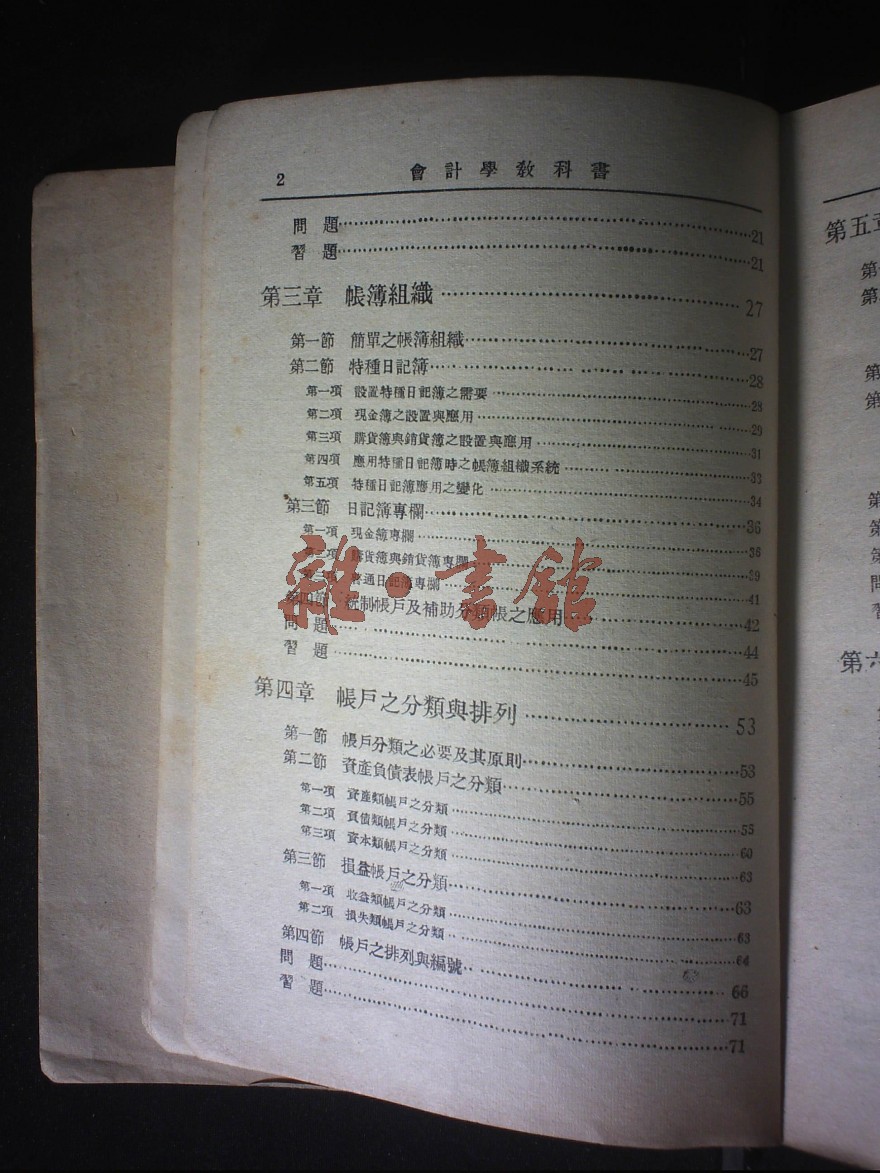 2 會計學教科書
問 題……21
習 題……21
第三章 帳簿組織……27
第一節 簡單之帳簿組織……27
第二節 特種日記簿……28
第一項 設置特種日記簿之需要……28
第二項 現金簿之設置與應用……29
第三項 購貨簿與銷貨簿之設置與應用……31
第四項 應用特種日記簿時之帳簿組織系統……33
第五項 特種日記簿應用之變化……34
第三節 日記簿專欄……36
第一項 現金簿專欄……36
第二項 購貨簿與銷貨簿專欄……39
第三項 普通日記簿專欄……41
第四節 統制帳戶及補助分類帳之應用……42
問 題……44
習 題……45
第四章 帳戶之分類與排列……53
第一節 帳戶分類之必要及其原則……53
第二節 資產負債表帳戶之分類……55
第一項 資產類帳戶之分類……55
第二項 負債類帳戶之分類……60
第三項 資本類帳戶之分類……63
第三節 損益帳戶之分類……63
第一項 收益類帳戶之分類……63
第二項 損失類帳戶之分類……64
第四節 帳戶之排列與編號……66
問 題……71
習 題……71
雜·書館
第五章
第
第
第
第
第
第
第
問
習
第六